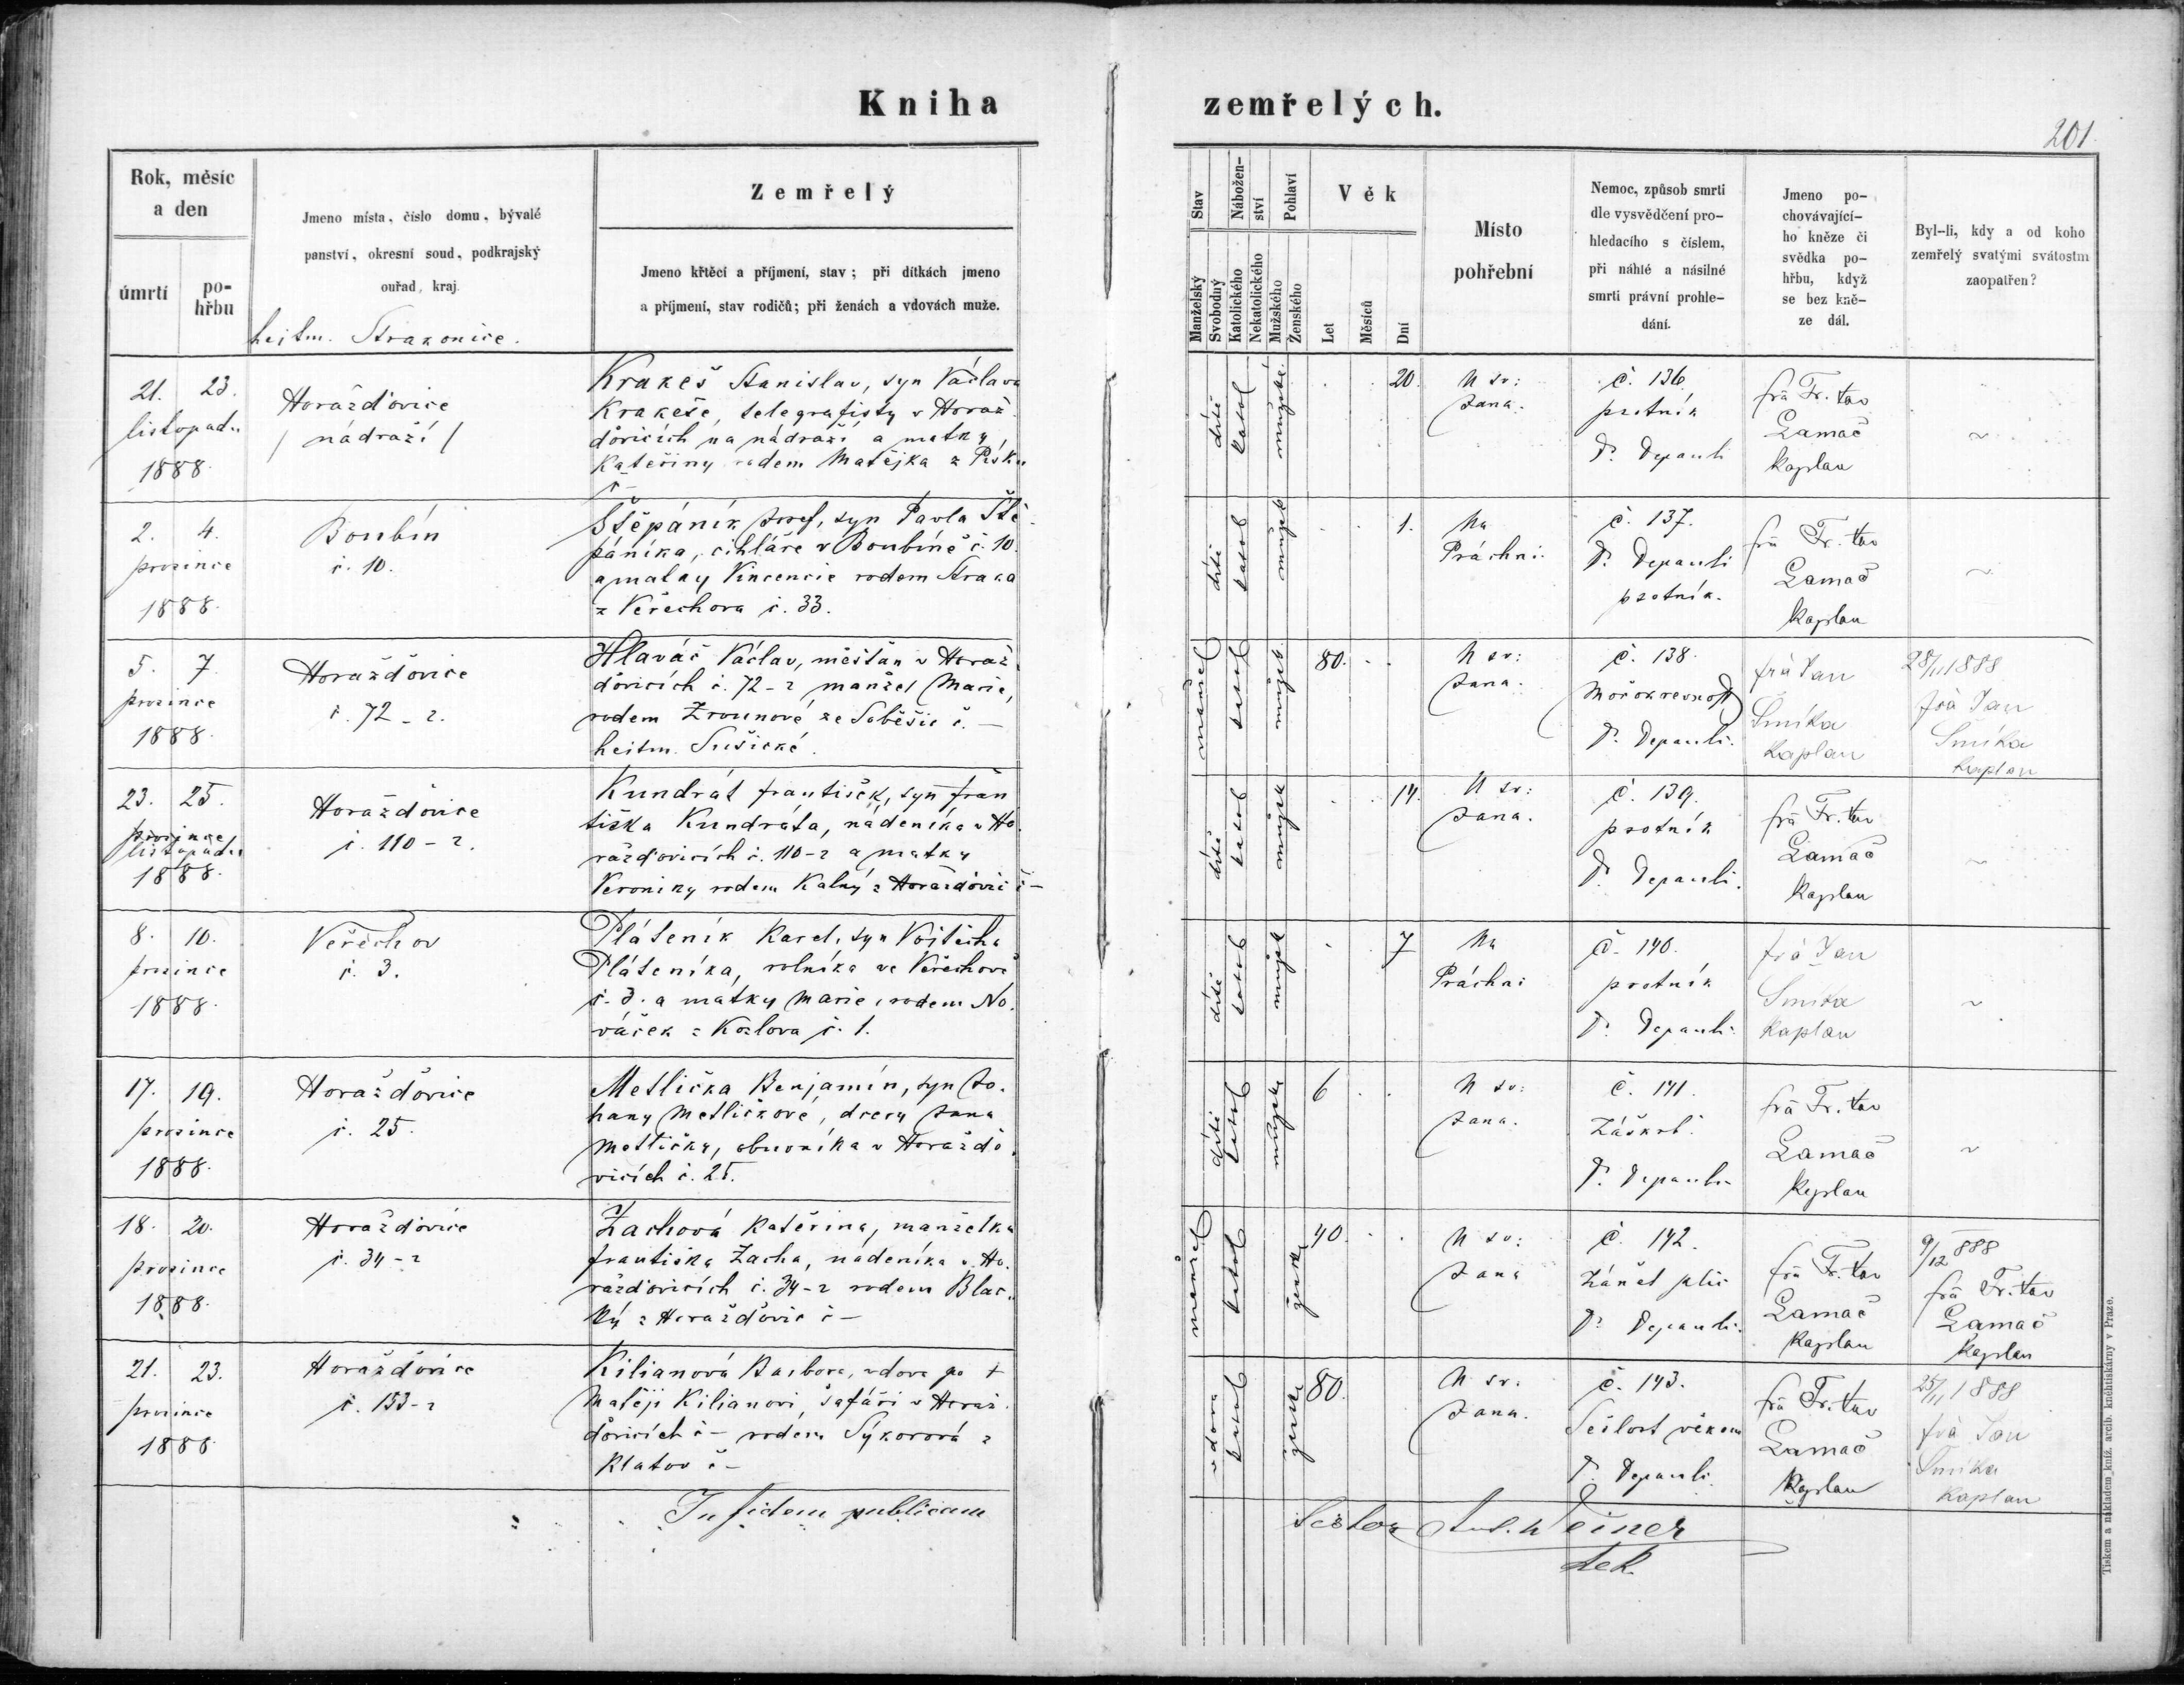 Kniha zemřelých.
201.
Rok, měsíc
a den
úmrtí
po-
hřbu
Jmeno místa, číslo domu, bývalé
panství, okresní soud, podkrajský
ouřad, kraj.
hejtm. Strakonice.
Zemřelý
Jmeno křtěcí a příjmení, stav; při dítkách jmeno
a příjmení, stav rodičů; při ženách a vdovách muže.
Stav
Manželský
Svobodný
Nábožen-
ství
Katolického
Nekatolického
Pohlaví
Mužského
Ženského
Věk
Let
Měsíců
Dní
Místo
pohřební
Nemoc, způsob smrti
dle vysvědčení pro-
hledacího s číslem,
při náhlé a násilné
smrti právní prohle-
dání.
Jmeno po-
chovávající-
ho kněze či
svědka po-
hřbu, když
se bez kně-
ze dál.
Byl-li, kdy a od koho
zemřelý svatými svátostmi
zaopatřen?
21. 23.
listopadu
1888.
Horažďovice
/ nádraží /
Krakeš Stanislav, syn Václava
Krakeše, telegrafisty v Horaž
ďovicích na nádraží a matky
Kateřiny rodem Matějka z Písku
č –
dítě
katol
mužské
20.
U sv:
Jana.
č. 136.
psotník
Dr. Depauli
frá Fr. tav
Lamač
kaplan
~
2. 4.
prosince
1888.
Boubín
č. 10.
Štěpáník Josef, syn Pavla Ště-
páníka, cihláře v Boubíně č. 10.
a matky Vincencie rodem Straka
z Veřechova č. 33.
dítě
katol
mužsk
1.
Na
Práchni.
č. 137.
Dr. Depauli
psotník.
frá Fr. tav
Lamač
kaplan
~
5. 7.
prosince
1888.
Horažďovice
č. 72-2.
Hlaváč Václav, měšťan v Horaž
ďovicích č. 72-2 manžel Marie,
rodem Zrounové ze Soběšic č. –
hejtm. Sušické.
manžel
katol
mužsk
80.
U sv:
Jana.
č. 138.
Močokrevnost
Dr. Depauli.
frá Jan
Smíka
kaplan
28/11 1888
frá Jan
Smíka
kaplan
23. 25.
prosince
listopadu
1888.
Horažďovice
č. 110-2.
Kundrát František, syn Fran
tiška Kundráta, nádeníka v Ho
ražďovicích č. 110-2 a matky
Veroniky rodem Kalný z Horažďovic č –
dítě
katol
mužsk
14.
U sv:
Jana.
č. 139.
psotník
Dr. Depauli.
frá Fr. tav
Lamač
kaplan
~
8. 10.
prosince
1888.
Veřechov
č. 3.
Pláteník Karel, syn Vojtěcha
Pláteníka, rolníka ve Veřechově
č. 3. a matky Marie, rodem No-
váček z Kozlova č. 1.
dítě
katol
mužsk
7
Na
Práchni
č. 140.
psotník
Dr. Depauli.
frá Jan
Smíka
kaplan
~
17. 19.
prosince
1888.
Horažďovice
č. 25.
Metlička Benjamín, syn Jo-
hany Metličkové, dcery Jana
Metličky, obuvníka v Horažďo
vicích č. 25.
dítě
katol
mužsk
6
U sv:
Jana.
č. 141.
Záškrt.
Dr. Depauli
frá Fr. tav
Lamač
kaplan
~
18. 20.
prosince
1888.
Horažďovice
č. 34-2
Zachová Kateřina, manželka
Františka Zacha, nádeníka v Ho-
ražďovicích č. 34-2 rodem Blac-
ký z Horažďovic č –
manžel
katol
ženské
40.
U sv:
Jana
č. 142.
Zánět plic
Dr. Depauli.
frá Fr. tav
Lamač
kaplan
9/12 888
frá Fr. tav
Lamač
kaplan
21. 23.
prosince
1888
Horažďovice
č. 153-2
Kilianová Barbora, vdova po +
Matěji Kilianovi, šafáři v Horaž-
ďovicích č – rodem Sýkorová z
Klatov č –
vdova
katol
ženské
80.
U sv.
Jana.
č. 143.
Sešlost věkem
Dr. Depauli.
frá Fr. tav
Lamač
kaplan
25/11 1888
frá Jan
Smíka
kaplan
In fidem publicam
Děk.
Tiskem a nákladem kníž. arcib. knihtiskárny v Praze.